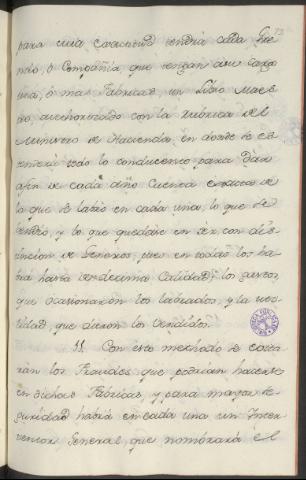 para cuia execucion tendrá cada Gre
mio, o Compañia, que tengan á su cargo
una, ó mas Fabricas, un Libro Maes
tro, authorizado con la rubrica del
Ministro de Hacienda, en donde se es
tender todo lo conducente para dar
afin de cada año cuenta exacta de
lo que se labró en cada una, lo que se
vendió, y lo que quedase en ser con dis
tincion de Generos, pues en todos los ha
brá hasta de decima Calidad; los gastos,
que ocasionaron los labrados, y la uti
lidad, que dieron los vendidos.
11. Con este methodo se corta
ran los Fraudes que podrian hacerse
en dichas Fabricas, y para mayor se
guridad habrá en cada una un Inter
ventor General que nombrará el